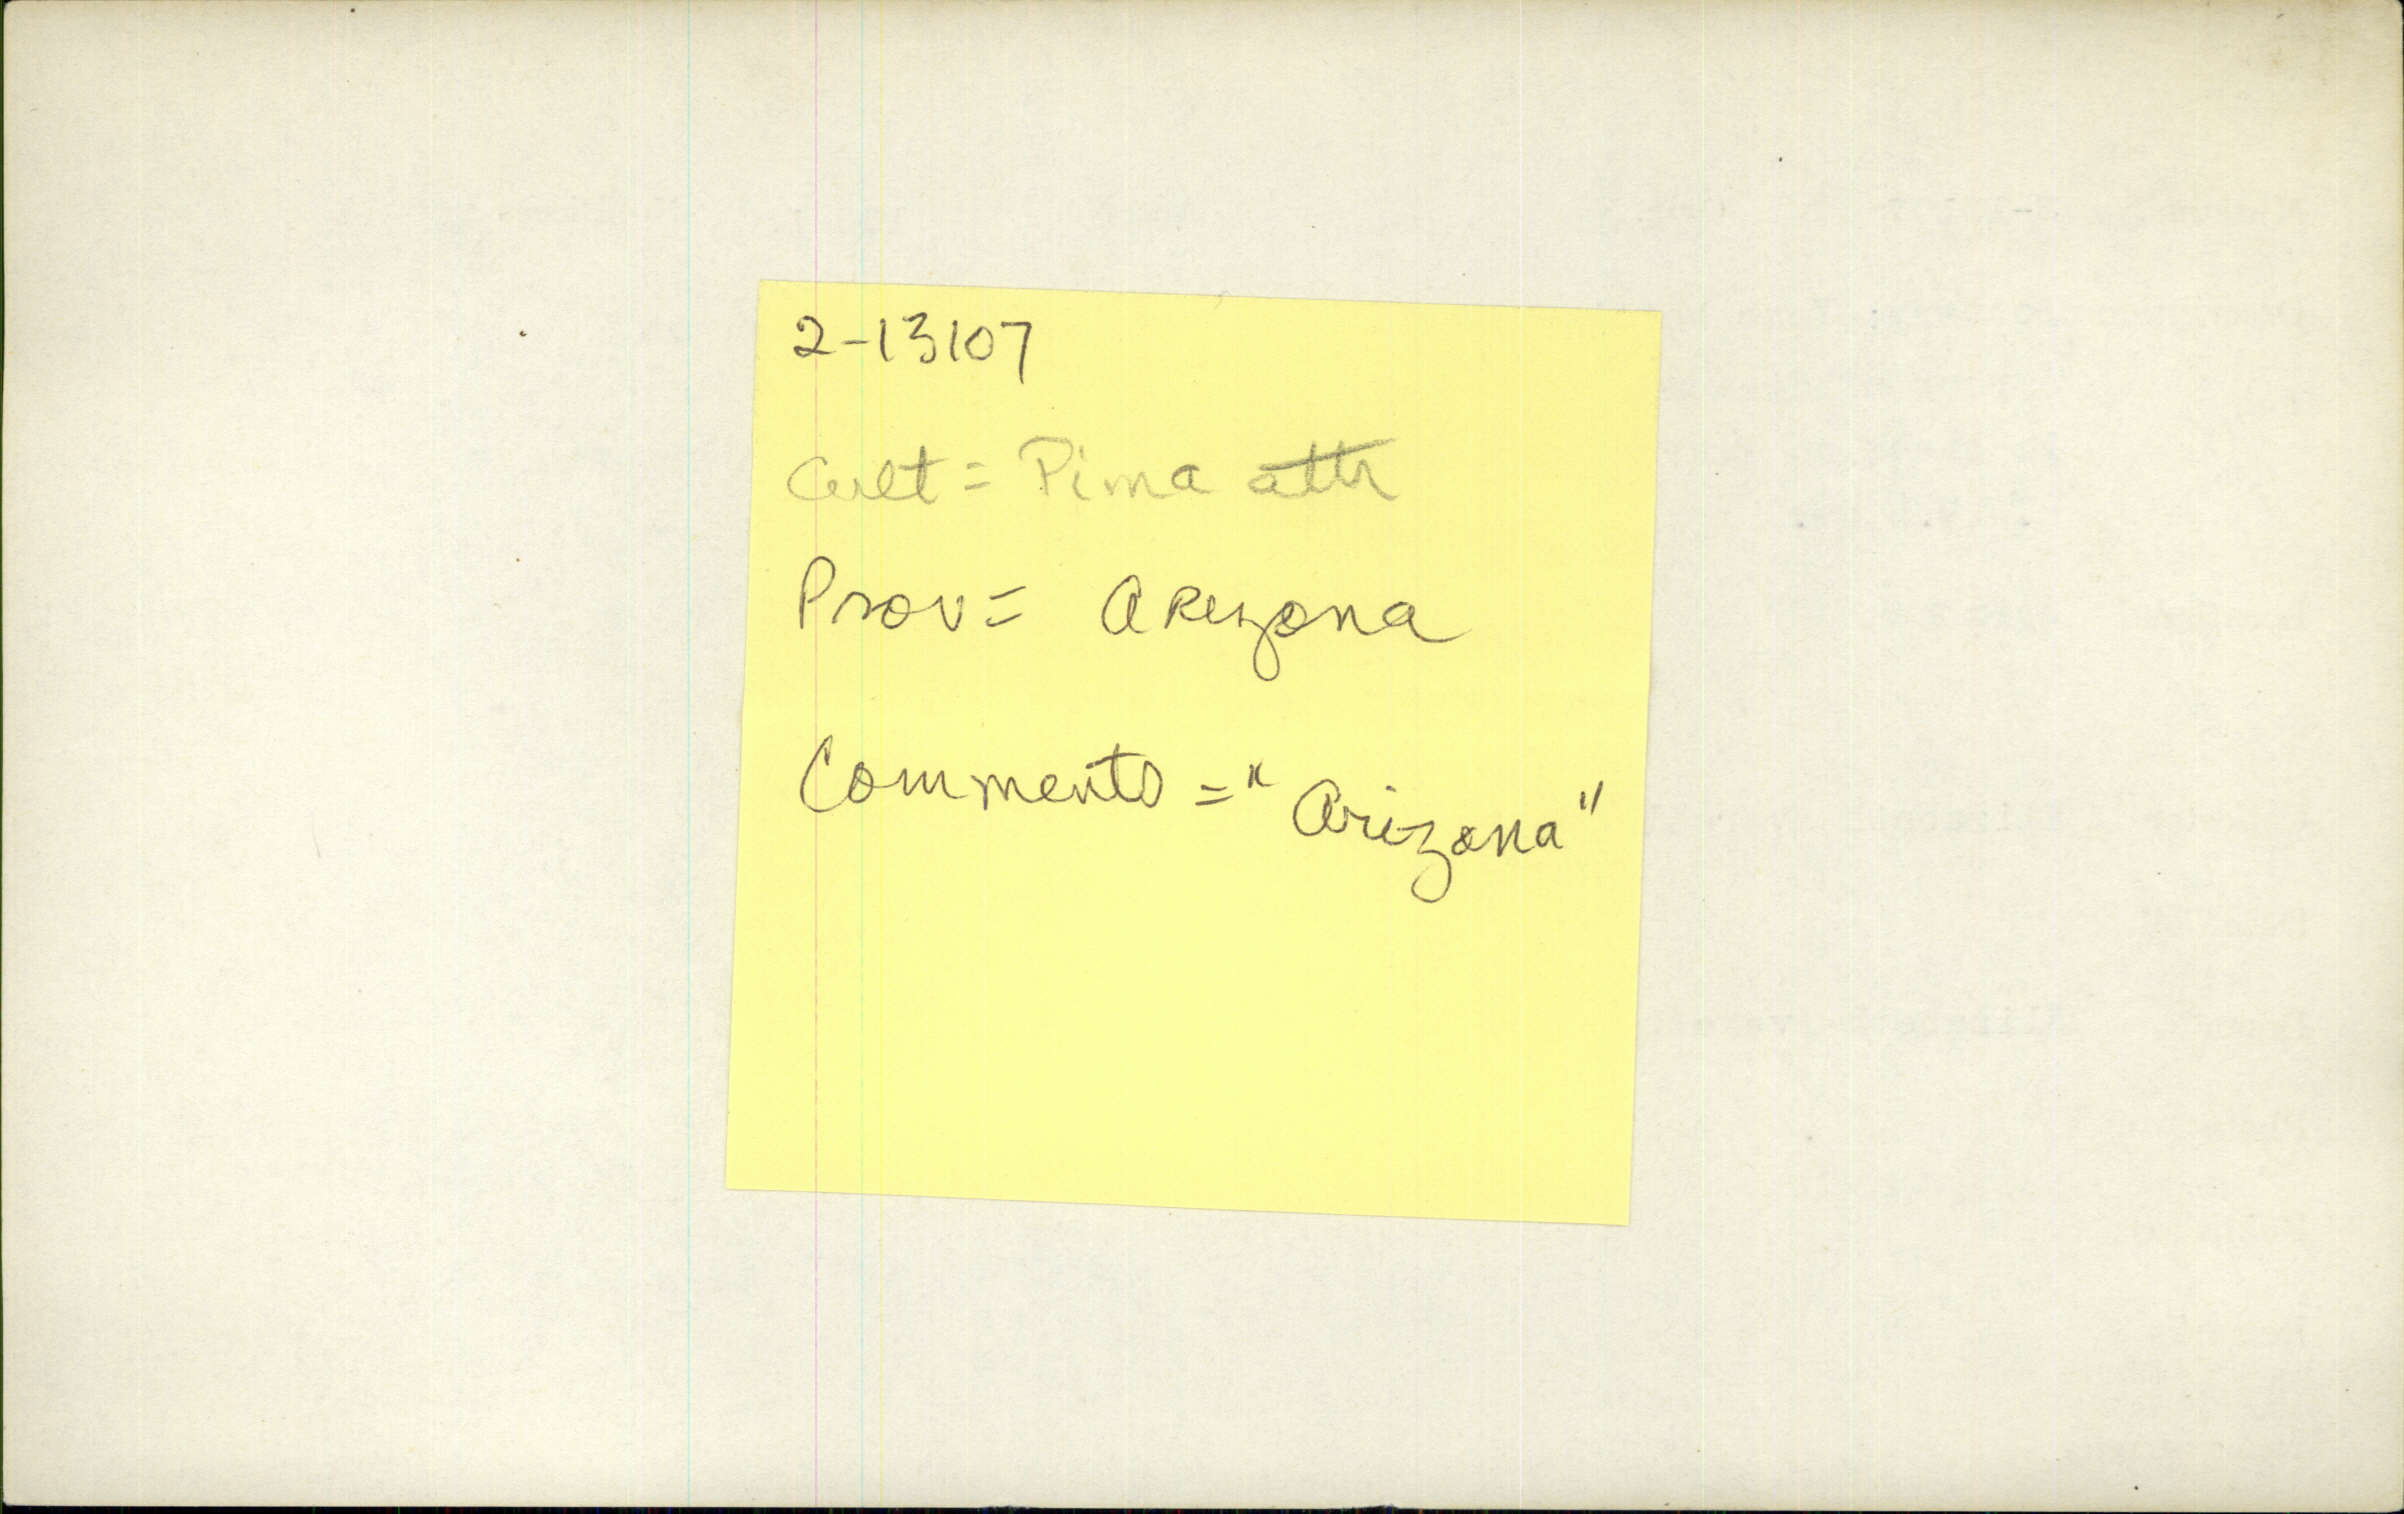 2-13107
Cult = Pima attr
Prov = Arizona
Comments = "Arizona"